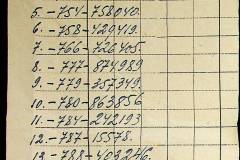 5.-754-758040.
6.-758-429419.
7.-766-726405.
8.-777-874989
9.-779-357349.
10.-780-863856
11.-784-242193
12.-787-15578.
13.-788-403246.